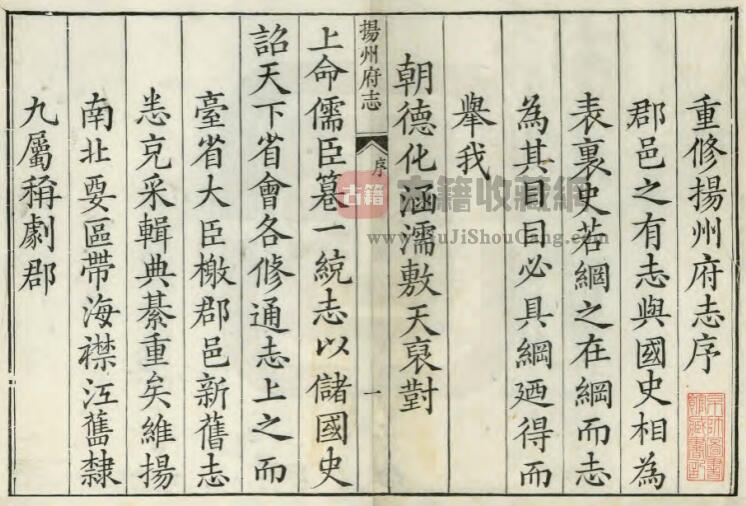 重修揚州府志序
郡邑之有志與國史相為
表裏史若綱之在綱而志
為其目目必具綱廼得而
舉我
朝德化涵濡敷天裒對
揚州府志
序
一
上命儒臣纂一統志以儲國史
詔天下省會各修通志上之而
臺省大臣檄郡邑新舊志
悉克采輯典綦重矣維揚
南北要區帶海襟江舊隸
九屬稱劇郡
古籍
古籍收藏網
www.GuJiShouCang.com
京師圖書
館藏書印